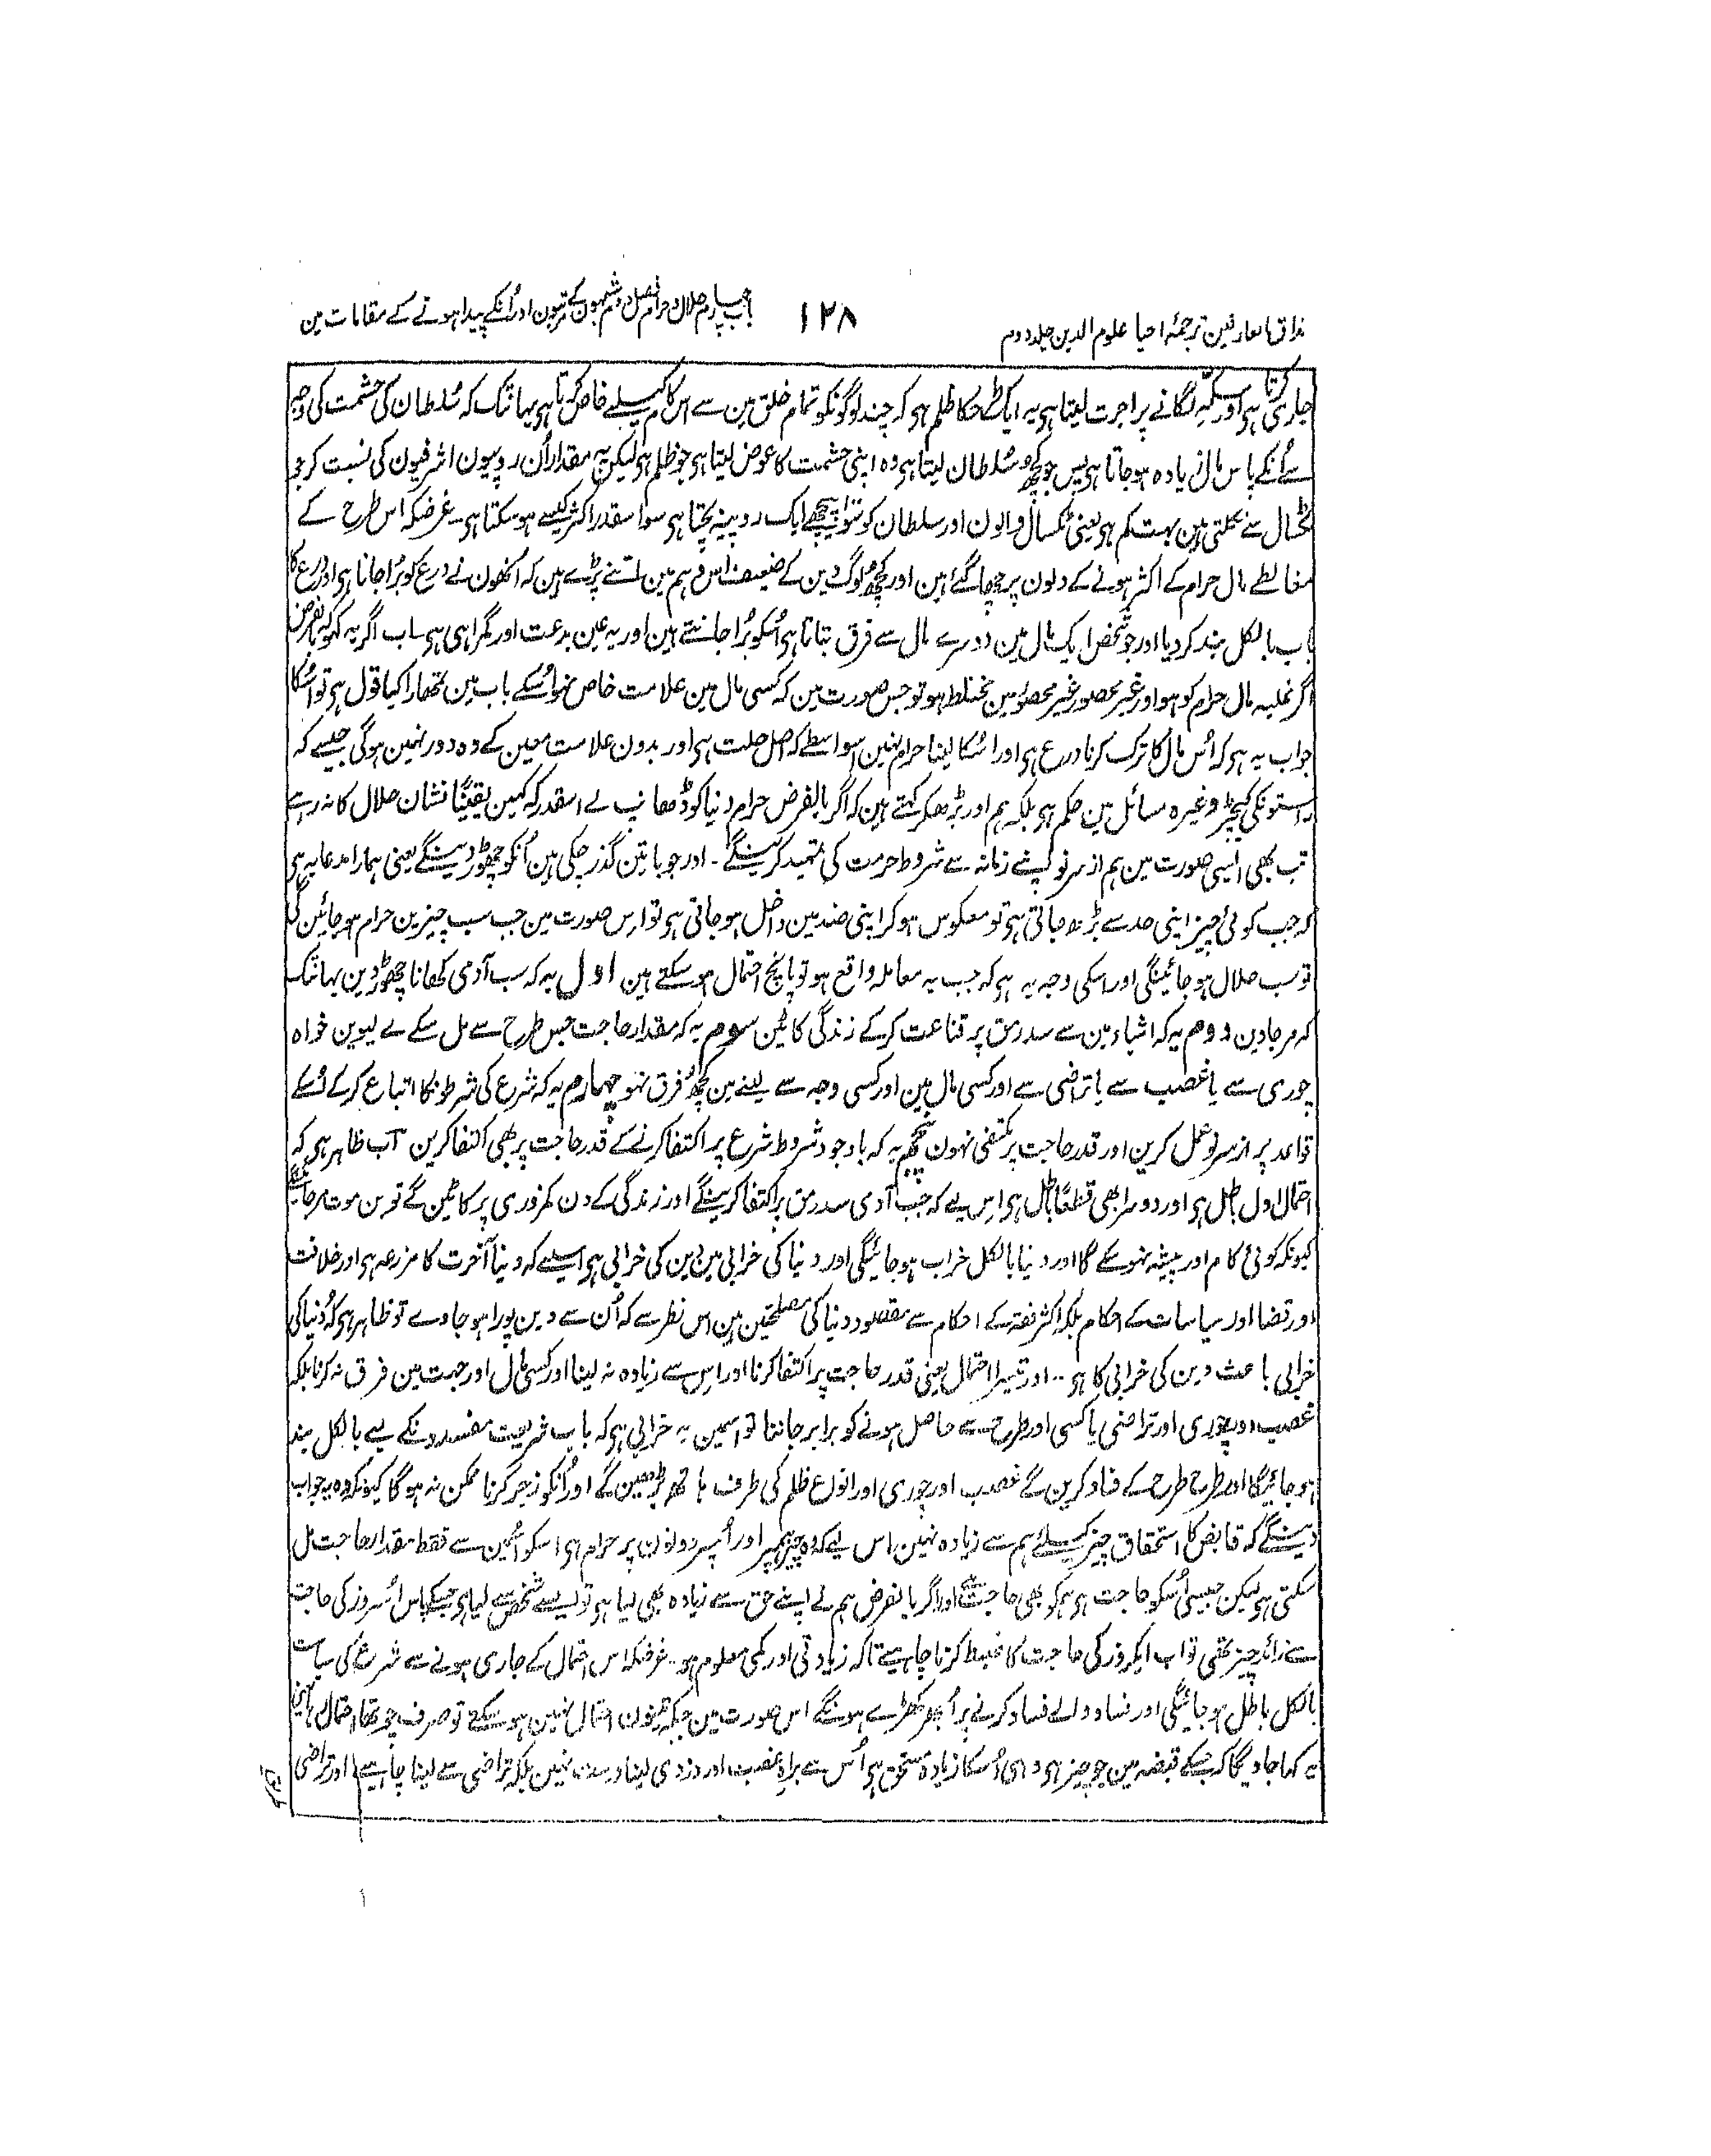 مذاق العارفین ترجمۂ احیا علوم الدین جلد دوم
۱۲۸
باب چہارم حلال و حرام فصل دوم شبہون کے مرتبون اور اُنکے پیدا ہونے کے مقامات مین
جاری کرتا ہی اور سکہ لگانے پر اجرت لیتا ہی یہ ایک طرحکا ظلم ہو کہ چند لوگونکو تمام خلق مین سے اس کام کیلیے خاص کرتا ہی یہانتک کہ سُلطان کی حشمت کی وجہ
سے اُنکے پاس مال زیادہ ہو جاتا ہی پس جو کچھ سُلطان لیتا ہی وہ اپنی حشمت کا عوض لیتا ہی جو ظلم ہی لیکن یہ مقدار اُن روپیون اشرفیون کی نسبت کر جو
ٹکسال سے نکلتی ہین بہت کم ہی یعنی ٹکسال والون اور سلطان کو سَو پیچھے ایک روپیہ بچتا ہی سو اسقدر اکثر کیسے ہو سکتا ہی۔ غرضکہ اس طرح کے
مغالطے مال حرام کے اکثر ہونے کے دلون پر چھا گئے ہین اور کچھ لوگ دین کے ضعیف اس وہم مین اتنے پڑے ہین کہ اُنھون نے ورع کو بُرا جانا ہی اور ورع کا
باب بالکل بند کر دیا اور جو شخص ایک مال مین دوسرے مال سے فرق بتاتا ہی اُسکو بُرا جانتے ہین اور یہ عین بدعت اور گمراہی ہی۔ اب اگر یہ کہو کہ بفرض
اگر غلبہ مال حرام کو ہو اور غیر محصور غیر محصور مین مختلط ہو تو جس صورت مین کہ کسی مال مین علامت خاص نہو اُسکے باب مین تمھارا کیا قول ہی تو اُسکا
جواب یہ ہی کہ اُس مال کا ترک کرنا ورع ہی اور اسُکا لینا حرام نہین اسواسطے کہ اصل حلت ہی اور بدون علامت معین کے وہ دور نہین ہوگی جیسے کہ
راستونکی کیچڑ وغیرہ مسائل مین حکم ہی بلکہ ہم اور بڑھکر کہتے ہین کہ اگر بالفرض حرام دنیا کو ڈھانپ لے اسقدر کہ کہین یقینًا نشان حلال کا نہ رہے
تب بھی ایسی صورت مین ہم از سرنو اپنے زمانہ سے شروط حرمت کی تمہید کرینگے۔ اور جو باتین گذر چکی ہین اُنکو چھوڑ دینگے یعنی ہمارا مدعا یہ ہی
کہ جب کوئی چیز اپنی حد سے بڑھ جاتی ہی تو معکوس ہو کر اپنی ضد مین داخل ہو جاتی ہی تو اِس صورت مین جب سب چیزین حرام ہو جائین گی
تو سب حلال ہو جائینگی اور اسکی وجہ یہ ہی کہ جب یہ معاملہ واقع ہو تو پانچ احتمال ہو سکتے ہین اول یہ کہ سب آدمی کھانا چھوڑ دین یہانتک
کہ مر جاوین دوم یہ کہ اشیاء مین سے سد رمق پر قناعت کرکے زندگی کاٹین سوم یہ کہ مقدار حاجت جس طرح سے مل سکے لے لیوین خواہ
چوری سے یا غصب سے یا تراضی سے اور کسی مال مین اور کسی وجہ سے لینے مین کچھ فرق نہو چہارم یہ کہ شرع کی شرطونکا اتباع کرکے اُسکے
قواعد پر از سرنو عمل کرین اور قدر حاجت پر مکتفی نہون پنجم یہ کہ باوجود شروط شرع پر اکتفا کرنے کے قدر حاجت پر بھی اکتفا کرین اب ظاہر ہی کہ
احتمال اول باطل ہی اور دوسرا بھی قطعًا باطل ہی اِس لیے کہ جب آدمی سد رمق پر اکتفا کرینگے اور زندگی کے دن کمزوری پر کاٹین گے تو بن موت مر جائینگے
کیونکہ کوئی کام اور پیشہ نہو سکے گا اور دنیا بالکل خراب ہو جائیگی اور دنیا کی خرابی مین دین کی خرابی ہی اسلیے کہ دنیا آخرت کا مزرعہ ہی اور خلافت
اور قضا اور سیاسات کے احکام بلکہ اکثر فقہ کے احکام سے مقصود دنیا کی مصلحتین ہین اس نظر سے کہ اُن سے دین پورا ہو جاوے تو ظاہر ہی کہ دُنیا کی
خرابی باعث دین کی خرابی کا ہی۔ اور تیسرا احتمال یعنی قدر حاجت پر اکتفا کرنا اور اِس سے زیادہ نہ لینا اور کسی مال اور جہت مین فرق نہ کرنا بلکہ
غصب اور چوری اور تراضی یا کسی اور طرح سے حاصل ہونے کو برابر جاننا تو اسمین یہ خرابی ہی کہ باب شریعت مفسدونکے لیے بالکل بند
ہو جائیگا اور طرح طرح کے فساد کرین گے غصب اور چوری اور انواع ظلم کی طرف ہاتھ بڑھائین گے اور اُنکو زجر کرنا ممکن نہ ہوگا کیونکہ وہ یہ جواب
دینگے کہ قابض کا استحقاق چیز کیلئے ہم سے زیادہ نہین اس لیے کہ وہ چیز ہمپر اور اُسپر دونون پر حرام ہی اسکو اُسمین سے فقط مقدار حاجت مل
سکتی ہی لیکن جیسی اُسکو حاجت ہی ہمکو بھی حاجت ہی اور اگر بالفرض ہم نے اپنے حق سے زیادہ بھی لیا ہی تو ایسے شخص سے لیا ہی جسکے پاس اُس روز کی حاجت
سے زائد چیز تھی تو اب ایکروز کی حاجت کا ضبط کرنا چاہیے تاکہ زیادتی اور کمی معلوم ہو۔ غرضکہ اس احتمال کے جاری ہونے سے شرع کی سیاست
بالکل باطل ہو جائیگی اور فساد والے فساد کرنے پر اُبھر کھڑے ہونگے اس صورت مین جبکہ تینون احتمال نہین ہو سکتے تو صرف چوتھا احتمال رہا یعنی
یہ کہا جاویگا کہ جسکے قبضہ مین جو چیز ہی وہی اُسکا زیادہ مستحق ہی اُس سے براہِ غصب اور دزدی لینا درست نہین بلکہ تراضی سے لینا چاہیے اور تراضی